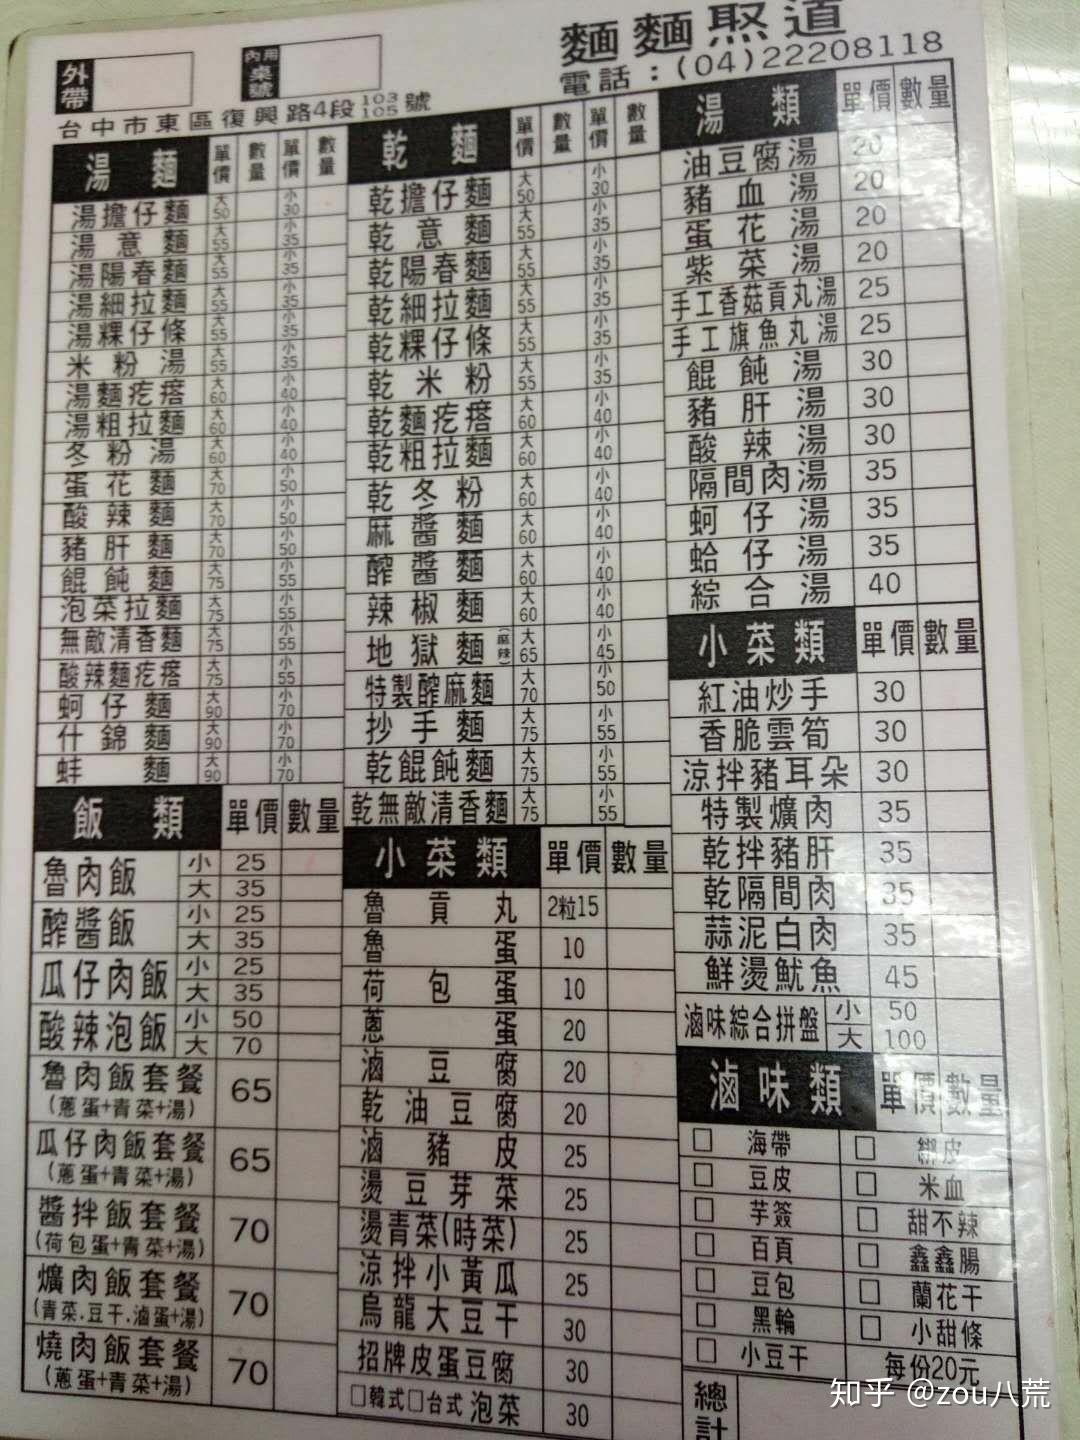 外帶
內用桌號
麵麵聚道
電話：(04)22208118
台中市東區復興路4段103 105號
湯麵 單價 數量 單價 數量
湯擔仔麵 大50 小30
湯意麵 大55 小35
湯陽春麵 大55 小35
湯細拉麵 大55 小35
湯粿仔條 大55 小35
米粉湯 大55 小35
湯麵疙瘩 大60 小40
湯粗拉麵 大60 小40
冬粉湯 大60 小40
蛋花麵 大70 小50
酸辣麵 大70 小50
豬肝麵 大70 小50
餛飩麵 大75 小55
泡菜拉麵 大75 小55
無敵清香麵 大75 小55
酸辣麵疙瘩 大75 小55
蚵仔麵 大90 小70
什錦麵 大90 小70
蚌麵 大90 小70
飯類 單價 數量
魯肉飯 小 25
大 35
醡醬飯 小 25
大 35
瓜仔肉飯 小 25
大 35
酸辣泡飯 小 50
大 70
魯肉飯套餐 65
(蔥蛋+青菜+湯)
瓜仔肉飯套餐 65
(蔥蛋+青菜+湯)
醬拌飯套餐 70
(荷包蛋+青菜+湯)
爌肉飯套餐 70
(青菜.豆干.滷蛋+湯)
燒肉飯套餐 70
(蔥蛋+青菜+湯)
乾麵 單價 數量 單價 數量
乾擔仔麵 大50 小30
乾意麵 大55 小35
乾陽春麵 大55 小35
乾細拉麵 大55 小35
乾粿仔條 大55 小35
乾米粉 大55 小35
乾麵疙瘩 大60 小40
乾粗拉麵 大60 小40
乾冬粉 大60 小40
麻醬麵 大60 小40
醡醬麵 大60 小40
辣椒麵 大60 小40
地獄麵(麻辣) 大65 小45
特製醡麻麵 大70 小50
抄手麵 大75 小55
乾餛飩麵 大75 小55
乾無敵清香麵 大75 小55
小菜類 單價 數量
魯貢丸 2粒15
魯蛋 10
荷包蛋 10
蔥蛋 20
滷豆腐 20
乾油豆腐 20
滷豬皮 25
燙豆芽菜 25
燙青菜(時菜) 25
涼拌小黃瓜 25
烏龍大豆干 30
招牌皮蛋豆腐 30
□韓式□台式泡菜 30
湯類 單價 數量
油豆腐湯 20
豬血湯 20
蛋花湯 20
紫菜湯 20
手工香菇貢丸湯 25
手工旗魚丸湯 25
餛飩湯 30
豬肝湯 30
酸辣湯 30
隔間肉湯 35
蚵仔湯 35
蛤仔湯 35
綜合湯 40
小菜類 單價 數量
紅油炒手 30
香脆雲筍 30
涼拌豬耳朵 30
特製爌肉 35
乾拌豬肝 35
乾隔間肉 35
蒜泥白肉 35
鮮燙魷魚 45
滷味綜合拼盤 小 50
大 100
滷味類 單價 數量
□ 海帶 □ 綁皮
□ 豆皮 □ 米血
□ 芋簽 □ 甜不辣
□ 百頁 □ 鑫鑫腸
□ 豆包 □ 蘭花干
□ 黑輪 □ 小甜條
□ 小豆干 每份20元
總計
知乎 @zou八荒